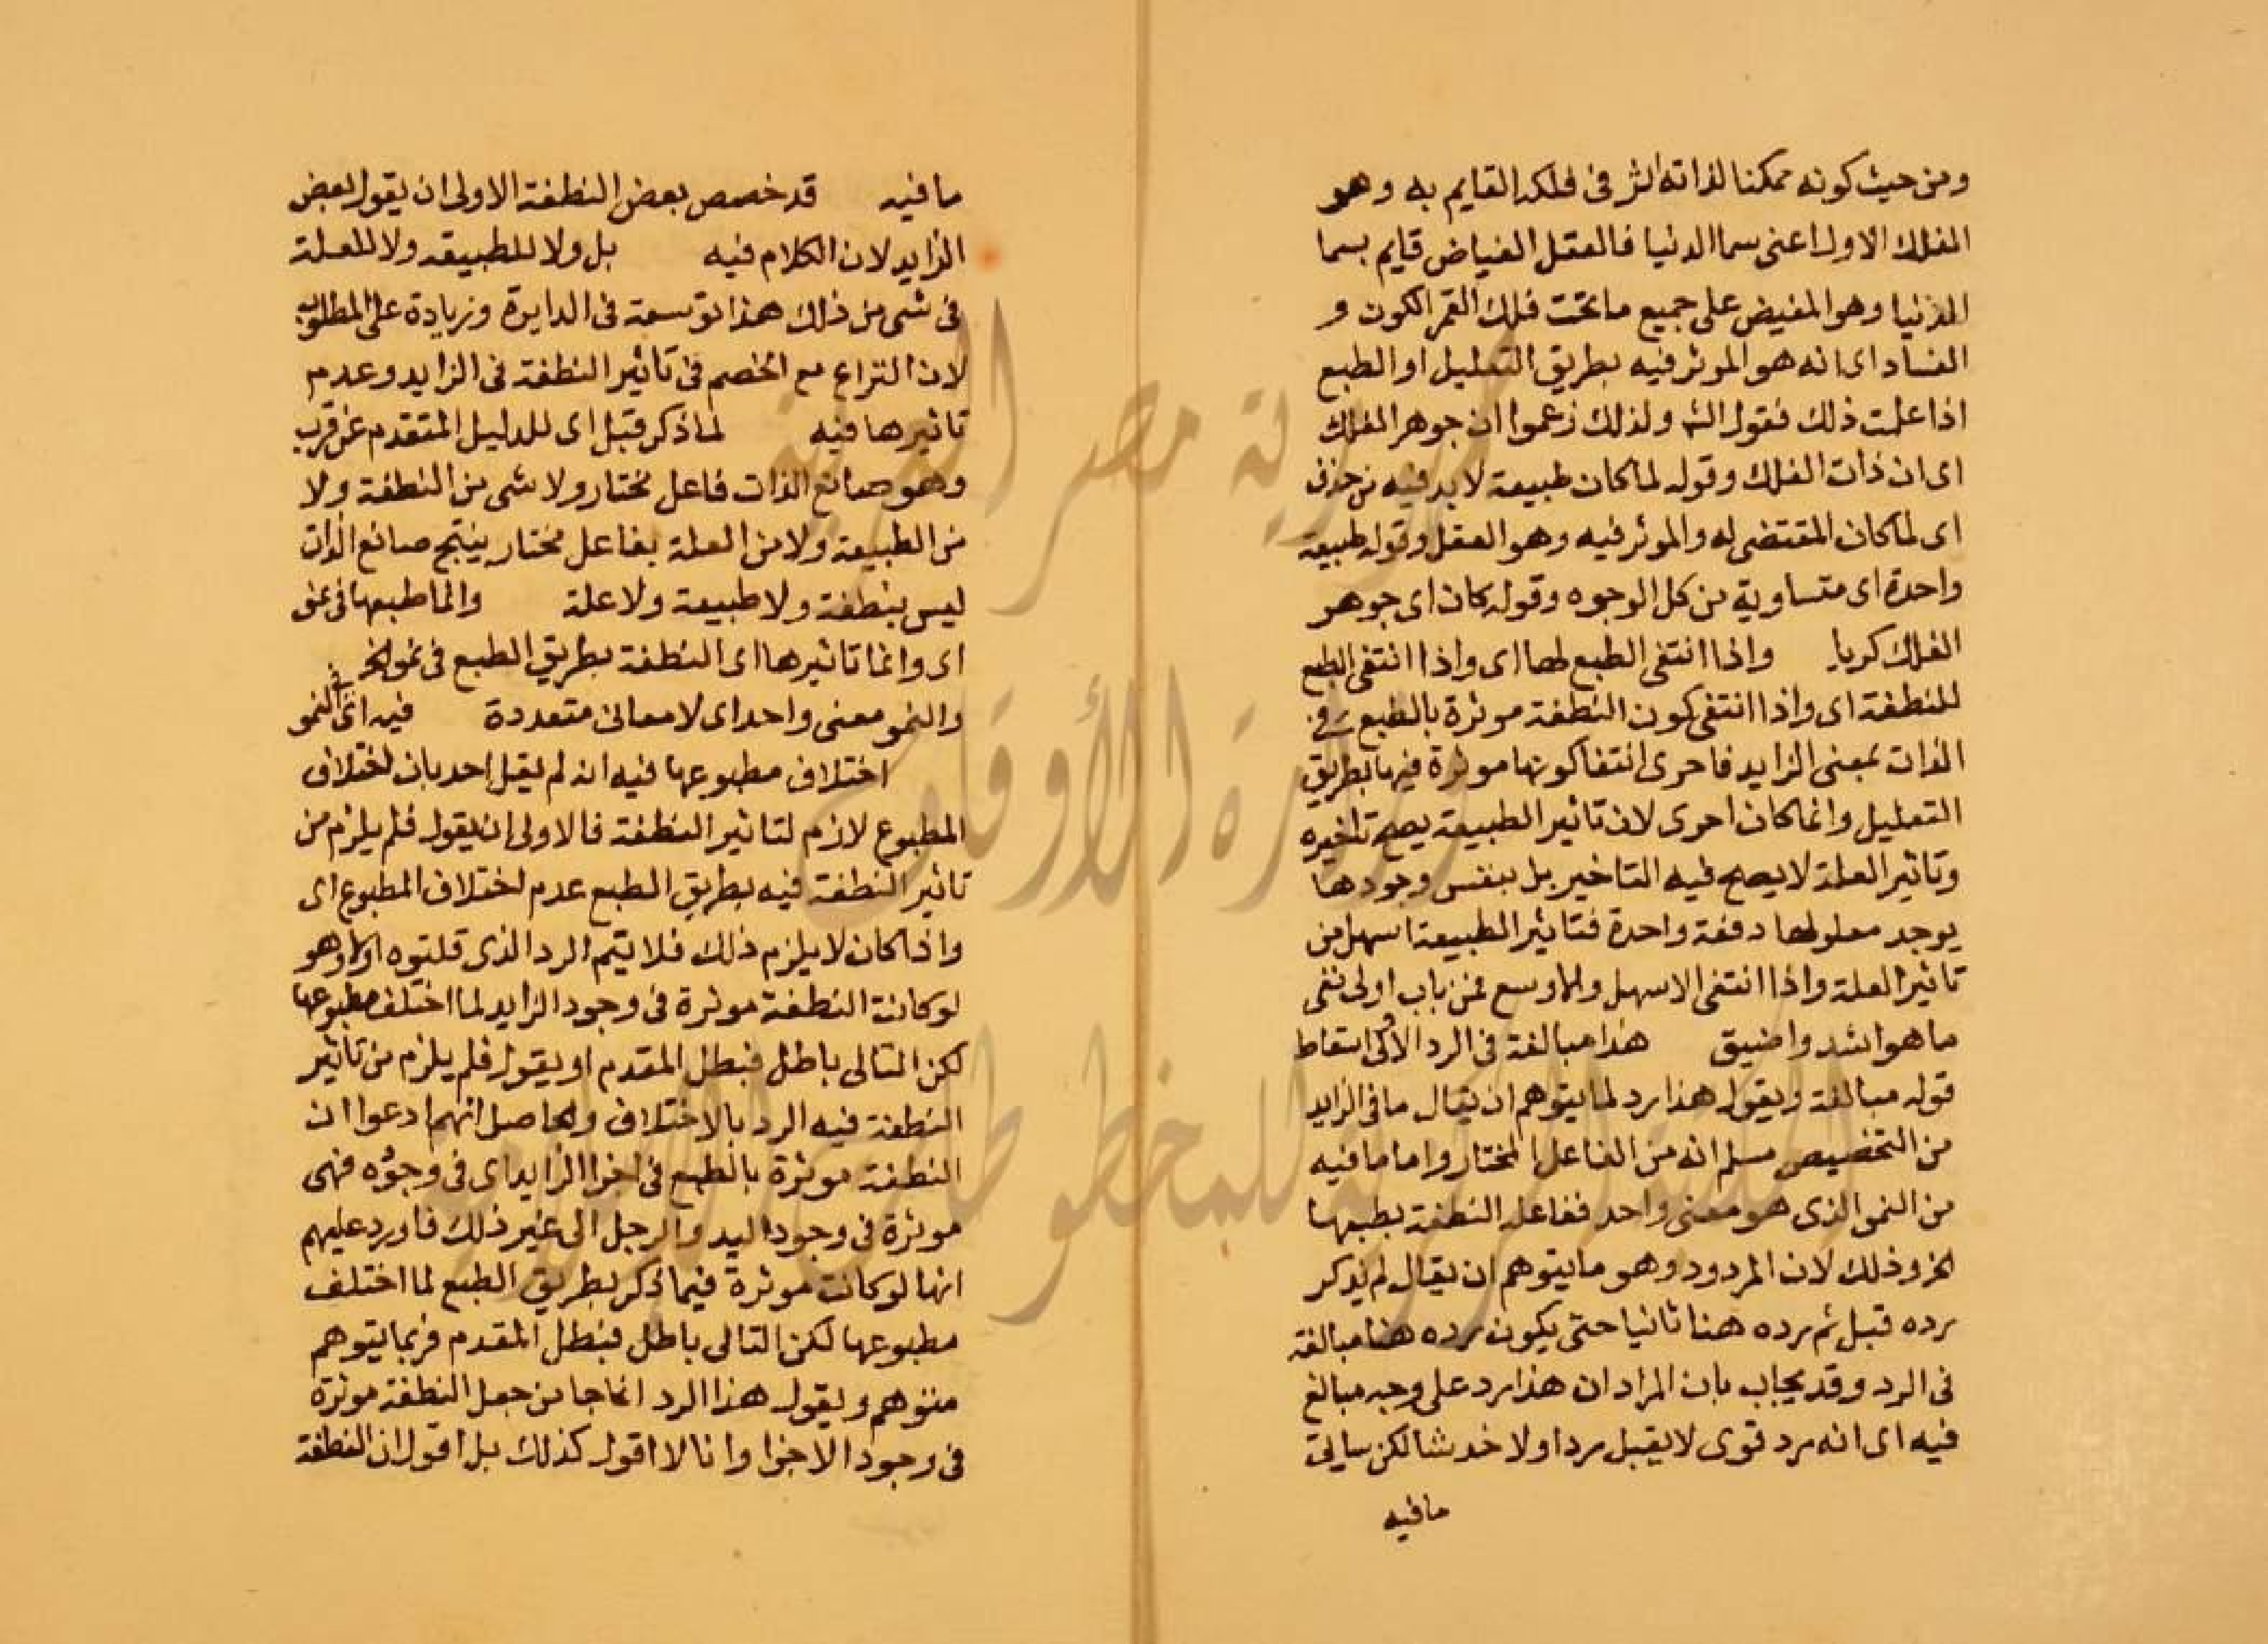 ومن حيث كونه ممكنا لذاته اثر فى فلكه القايم به وهو
الفلك الاول اعنى سما الدنيا فالعقل الفياض قايم بسما
الدنيا وهو المفيض على جميع ما تحت فلك القمر الكون و
الفساد اى انه هو الموثر فيه بطريق التعليل او الطبع
اذا علمت ذلك فقول الشـ ولذلك زعموا ان جوهر الفلك
اى ان ذات الفلك وقوله لما كان طبيعة لا بد فيه من حذف
اى لما كان المقتضى له والموثر فيه وهو العقل وقوله طبيعة
واحدة اى متساوية من كل الوجوه وقوله كان اى جوهر
الفلك كريا واذا انتفى الطبع لها اى واذا انتفى الطبع
للنطفة اى واذا انتفى كون النطفة موثرة بالطبع فى
الذات بمعنى الزايد فاحرى انتفا كونها موثرة فيها بطريق
التعليل وانما كان احرى لان تاثير الطبيعة يصح تاخيره
وتاثير العلة لا يصح فيه التاخير بل بنفس وجودها
يوجد معلولها دفعة واحدة فتاثير الطبيعة اسهل من
تاثير العلة واذا انتفى الاسهل والاوسع فمن باب اولى نفى
ما هو اشد واضيق هذا مبالغة فى الرد الاولى اسقاط
قوله مبالغة ويقول هذا رد لما يتوهم ان يقال ما فى الزايد
من التخصيص مسلم انه من الفاعل المختار واما ما فيه
من النمو الذى هو معنى واحد ففاعله النطفة بطبعها
الخ وذلك لان المردود وهو ما يتوهم ان يقال لم يذكر
رده قبل ثم رده هنا ثانيا حتى يكون رده هنا مبالغة
فى الرد وقد يجاب بان المراد ان هذا رد على وجه مبالغ
فيه اى انه رد قوى لا يقبل ردا ولا خدشا لكن سياتى
ما فيه
ما فيه قد خصص بعض النطفة الاولى ان يقول بعض
الزايد لان الكلام فيه بل ولا للطبيعة ولا للعلة
فى شى من ذلك هذا توسعة فى الدايرة وزيادة على المطلوب
لان النزاع مع الخصم فى تاثير النطفة فى الزايد وعدم
تاثيرها فيه لما ذكر قبل اى للدليل المتقدم عن قرب
وهو صانع الذات فاعل مختار ولا شى من النطفة ولا
من الطبيعة ولا من العلة بفاعل مختار ينتج صانع الذات
ليس بنطفة ولا طبيعة ولا علة وانما طبعها فى نمو
اى وانما تاثيرها اى النطفة بطريق الطبع فى نمو الخ
والنمو معنى واحد اى لا معانى متعددة فيه اى فى النمو
اختلاف مطبوعها فيه انه لم يقل احد بان اختلاف
المطبوع لازم لتاثير النطفة فالاولى ان يقول فلم يلزم من
تاثير النطفة فيه بطريق الطبع عدم اختلاف المطبوع اى
واذا كان لا يلزم ذلك فلا يتم الرد الذى قلتوه اولا وهو
لو كانت النطفة موثرة فى وجود الزايد لما اختلف مطبوعها
لكن التالى باطل فبطل المقدم او يقول فلم يلزم من تاثير
النطفة فيه الرد بالاختلاف والحاصل انهم ادعوا ان
النطفة موثرة بالطبع فى اجزا الزايد اى فى وجوده فهى
موثرة فى وجود اليد والرجل الى غير ذلك فاورد عليهم
انها لو كانت موثرة فيما ذكر بطريق الطبع لما اختلف
مطبوعها لكن التالى باطل فبطل المقدم فربما يتوهم
متوهم ويقول هذا الرد انما جا من جعل النطفة موثرة
فى وجود الاجزا وانا لا اقول كذلك بل اقول ان النطفة
جمهورية مصر العربية
وزارة الأوقاف
المكتبة المركزية للمخطوطات الإسلامية